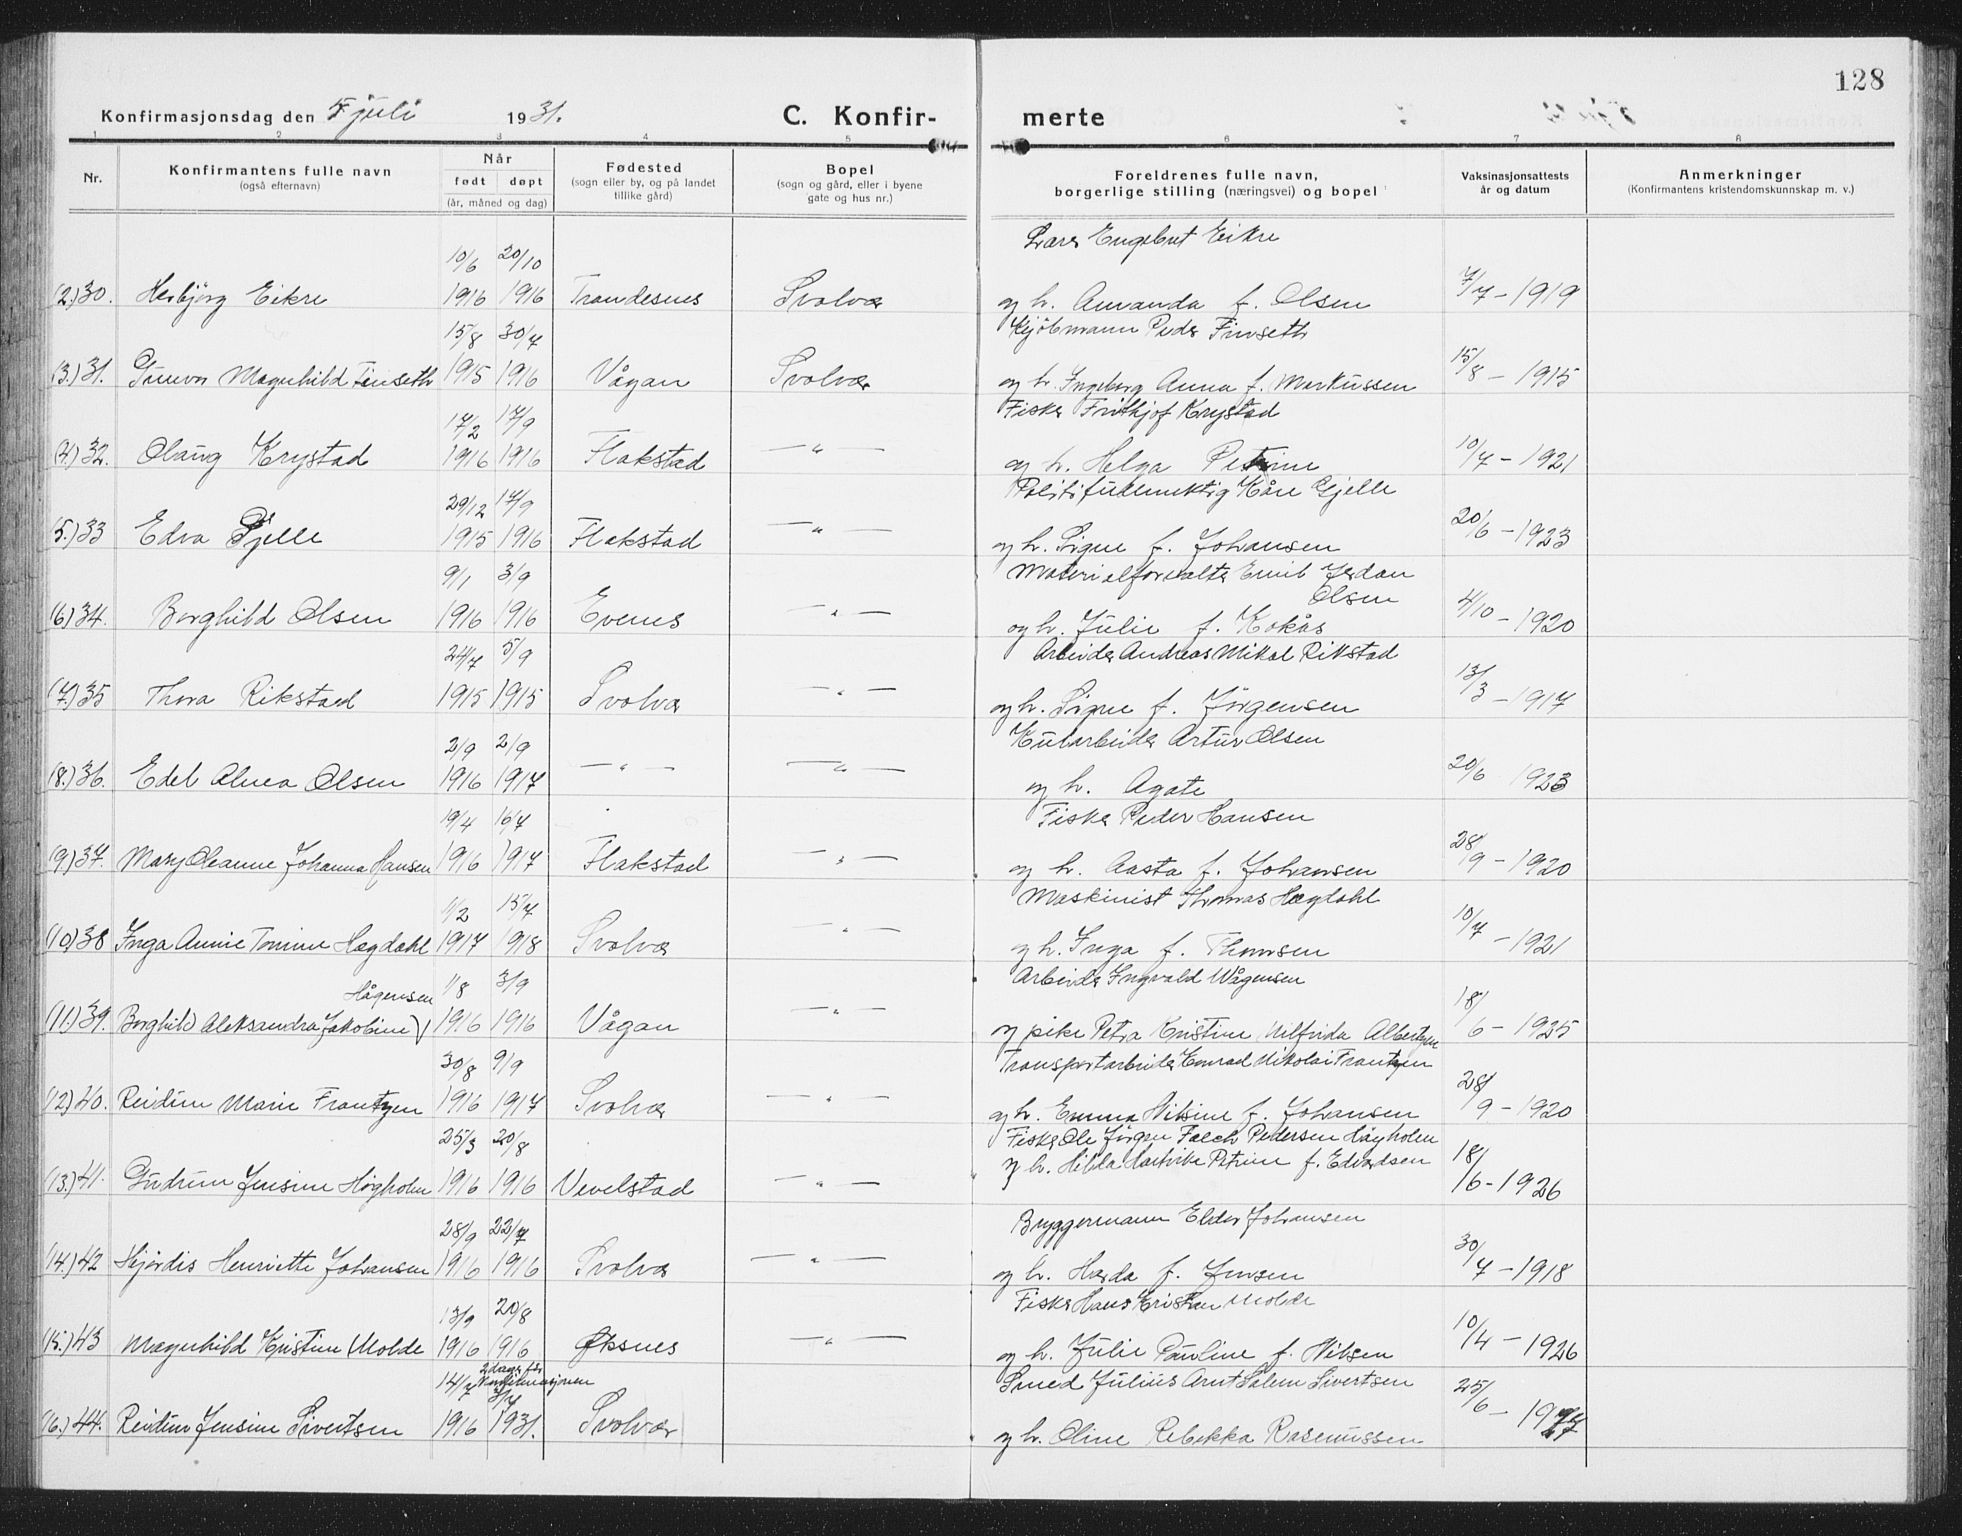 128
Konfirmasjonsdag den 5 juli 1931. C. Konfir- merte
1 2 3 4 5 6 7 8
Nr. Konfirmantens fulle navn (også efternavn) Når født døpt (år, måned og dag) Fødested (sogn eller by, og på landet tillike gård) Bopel (sogn og gård, eller i byene gate og hus nr.) Foreldrenes fulle navn, borgerlige stilling (næringsvei) og bopel Vaksinasjonsattests år og datum Anmerkninger (Konfirmantens kristendomskunnskap m. v.)
10/6 20/10 Lars Engebret Eikre
(2.) 30. Herbjørg Eikre 1916 1916 Trondesnes Svolvær og h. Amanda f. Olsen 7/7 - 1919
15/8 30/7 Kjøbmann Peder Finseth
(3.) 31. Gunvor Magnhild Finseth 1915 1916 Vågan Svolvær og h. Ingeborg Anna f. Markussen 15/8 - 1915
17/2 17/9 Fisker Frithjof Krystad
(4.) 32. Olaug Krystad 1916 1916 Flakstad — " — og h. Helga Petrine 10/7 - 1921
29/12 17/9 Politifuldmektig Kåre Gjelle
(5.) 33 Edva Gjelle 1915 1916 Flakstad — " — og h. Signe f. Johansen 20/6 - 1923
9/1 3/9 Materialforvalter Emil Jordan Olsen
(6) 34. Borghild Olsen 1916 1916 Evenes — " — og h. Julie f. Kokås 4/10 - 1920
24/7 5/9 Arbeider Andreas Mikal Rikstad
(7.) 35 Thora Rikstad 1915 1915 Svolvær — " — og h. Signe f. Jörgensen 13/3 - 1917
2/9 2/9 Kularbeider Artur Olsen
(8.) 36. Edel Alnea Olsen 1916 1917 — " — — " — og h. Agate 20/6 1923
19/4 16/7 Fisker Peder Hansen
(9.) 37. Mary Oleanne Johanna Hansen 1916 1917 Flakstad — " — og h. Aasta f. Johansen 28/9 - 1920
1/2 15/7 Maskinist Thomas Hegdahl
(10) 38 Inga Annie Tomine Hegdahl 1917 1918 Svolvær — " — og h. Inga f. Thomsen 10/7 - 1921
Hågensen 1/8 3/9 Arbeider Ingvald Wågensen
(11.) 39. Borghild Aleksandra Jakobine 1916 1916 Vågan — " — og pike Petra Kristine Wilfrida Albertsen 18/6 - 1925
30/8 9/9 Transportarbeider Conrad Nikolai Frantzen
(12) 40. Reidun Marie Frantzen 1916 1917 Svolvær — " — og h. Emma Nilsine f. Johansen 28/9 - 1920
25/3 20/8 Fisker Ole Jörgen Falch Pedersen Høyholm
(13.) 41. Gudrun Jensine Høgholm 1916 1916 Vevelstad — " — og h. Hilda Hartvika Petrine f. Edvardsen 18/6 - 1926
28/9 22/7 Bryggermann Elder Johansen
(14.) 42 Hjørdis Henriette Johansen 1916 1916 Svolvær — " — og h. Harda f. Jensen 30/7 - 1918
13/9 20/8 Fisker Hans Kristian Molde
(15.) 43 Magnhild Kristine Molde 1916 1916 Øksnes — " — og h. Julie Pauline f. Nilsen 10/4 - 1926
14/7 2 dager før konfirmasjonen 3/7 Smed Julius Arnt Salem Sivertsen
(16.) 44. Reidun Jensine Sivertsen 1916 1931. Svolvær og h. Oline Rebekka Rasmussen 25/6 - 1927